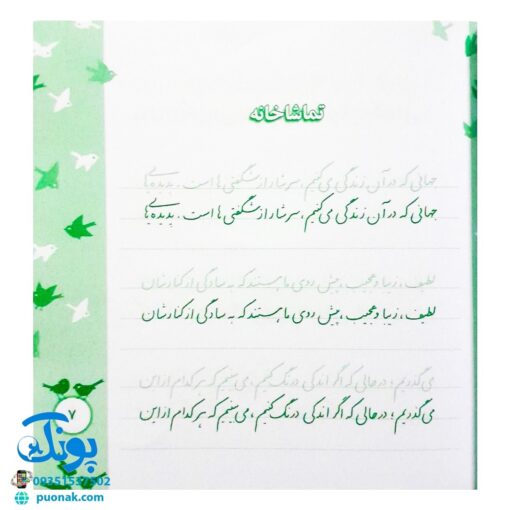 تماشاخانه
جهانی که در آن زندگی می‌کنیم، سرشار از شگفتی‌ها است. پدیده‌هایی
جهانی که در آن زندگی می‌کنیم، سرشار از شگفتی‌ها است. پدیده‌هایی
لطیف، زیبا و عجیب، پیش روی ما هستند که به سادگی از کنارشان
لطیف، زیبا و عجیب، پیش روی ما هستند که به سادگی از کنارشان
می‌گذریم؛ در حالی که اگر اندکی درنگ کنیم، می‌بینیم که هر کدام از این
می‌گذریم؛ در حالی که اگر اندکی درنگ کنیم، می‌بینیم که هر کدام از این
۷
پونک
puonak.com